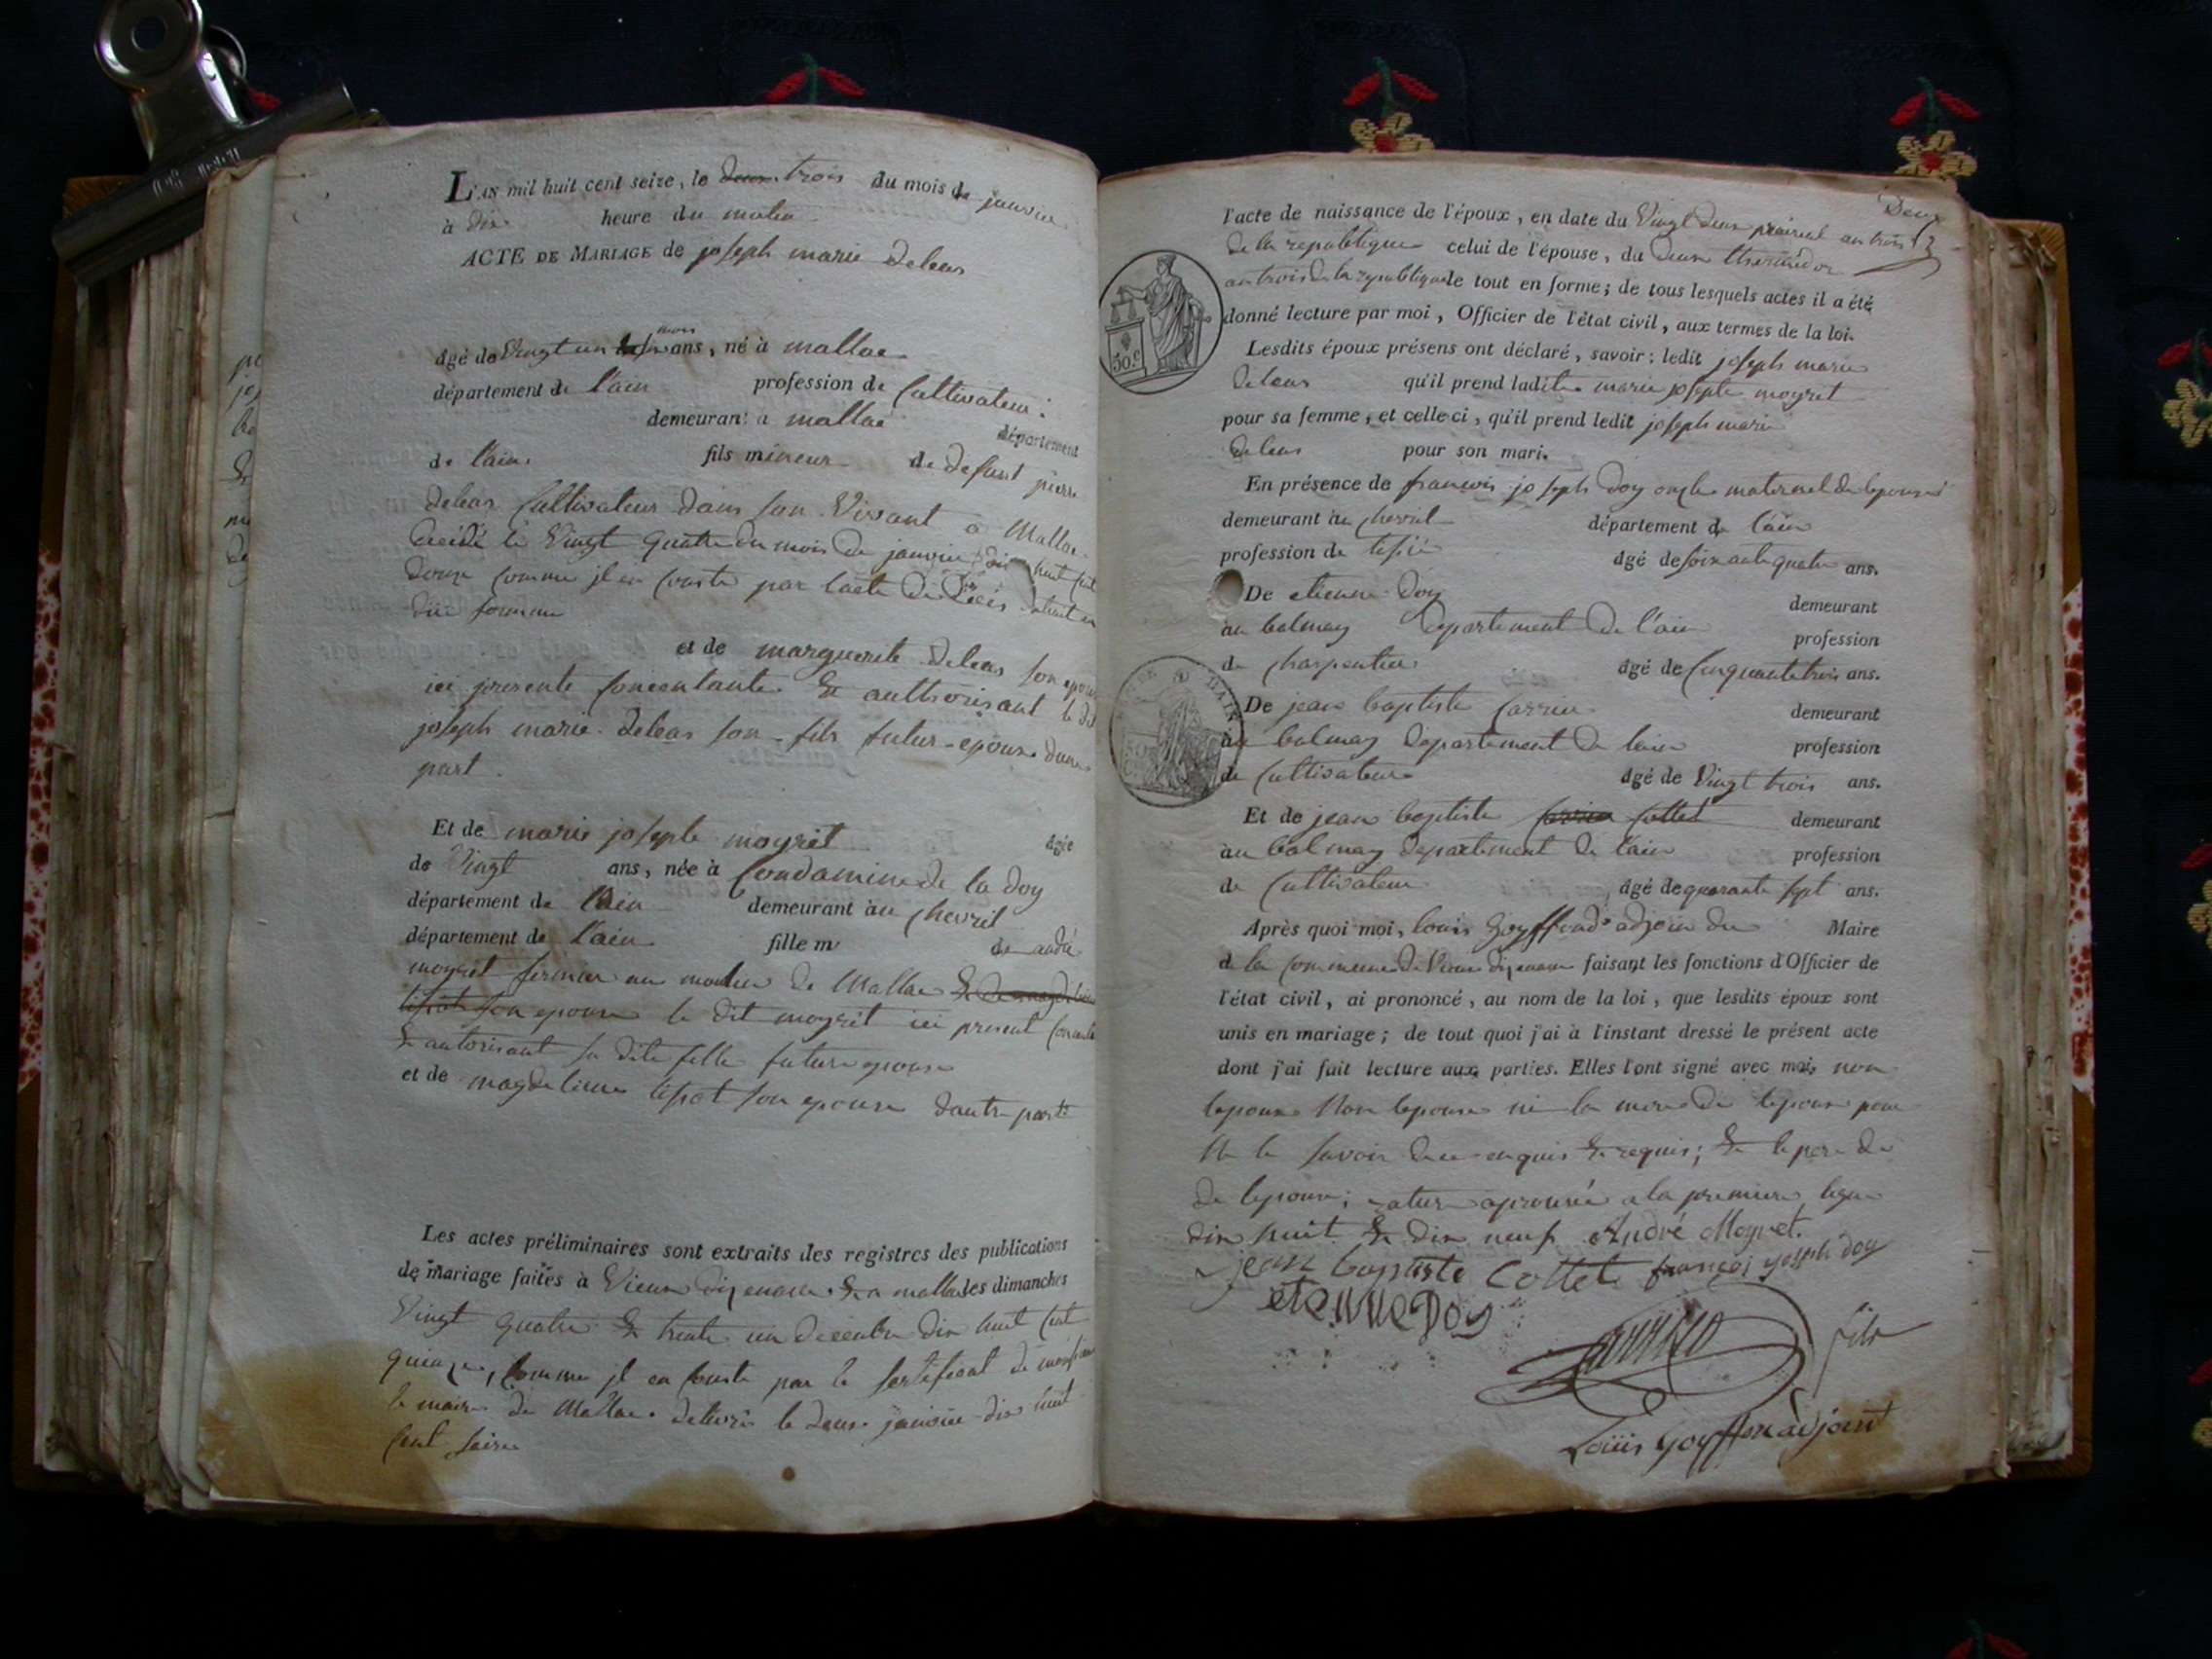 L'an mil huit cent seize, le deux trois du mois de janvier
à dix heure du matin
ACTE DE MARIAGE de joseph marie deleas
âgé de Vingt un ans, né à mallac
département de l'ain profession de Cultivateur
demeurant a mallac département
de l'ain fils mineur de defunt pierre
deleas Cultivateur dans son Vivant a Mallac
décédé le Vingt quatre du mois de janvier dix huit cent
douze comme il en conste par lacte de décès
due forme
et de marguerite deleas son epouse
ici presente consentante & authorisant le dit
joseph marie deleas son fils futur epoux dune
part
Et de marie josephe moyret âgée
de Vingt ans, née à Condamine de la doy
département de l'ain demeurant au chevril
département de l'ain fille m de andré
moyret fermier au moulin de Mallac &
son epouse le dit moyret ici present
& autorisant sa dite fille future epouse
et de magdeleine tissot son epouse dautre part
Les actes préliminaires sont extraits des registres des publications
de mariage faites à Vieux dizenave & a mallac les dimanches
Vingt quatre & trente un decembre dix huit cent
quinze, comme il en conste par le sertificat de
le maire de Mallac delivré le deux janvier dix huit
cent seize
Deux
l'acte de naissance de l'époux, en date du Vingt deux prairial an trois
de la republique celui de l'épouse, du deux thermidor
an trois de la republique le tout en forme; de tous lesquels actes il a été
donné lecture par moi, Officier de l'état civil, aux termes de la loi.
50.c
Lesdits époux présens ont déclaré, savoir: ledit joseph marie
deleas qu'il prend ladite marie josephte moyret
pour sa femme, et celle ci, qu'il prend ledit joseph marie
deleas pour son mari.
En présence de francois joseph doy oncle maternel de lepouse
demeurant au chevril département de l'ain
profession de âgé de soixante quatre ans.
De etienne doy demeurant
au balmay departement de l'ain profession
de charpentier âgé de Cinquante trois ans.
De jean baptiste carrier demeurant
au balmay departement de lain profession
de Cultivateur âgé de Vingt trois ans.
Et de jean baptiste carrier Cottet demeurant
au balmay departement de lain profession
de Cultivateur âgé de quarante sept ans.
Après quoi moi, louis Goyffond adjoin du Maire
d la commune de Vieux dizenave faisant les fonctions d'Officier de
l'état civil, ai prononcé, au nom de la loi, que lesdits époux sont
unis en mariage; de tout quoi j'ai à l'instant dressé le présent acte
dont j'ai fait lecture aux parties. Elles l'ont signé avec moi, non
lepoux Non lepouse ni la mere de lepoux pour
Ne le savoir de ce enquis & requis; & le pere de
de lepouse; rature aprouvée a la premiere ligne
dix huit & dix neuf André Moyret.
jean baptiste Cottet françois joseph doy
etienne Doy
fils
Louis goyffon adjoint